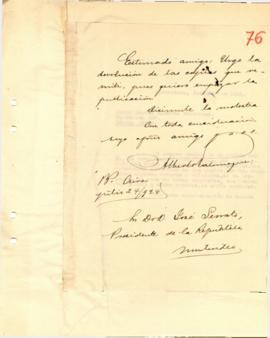 76
Estimado amigo: Urge la
devolución de las copias que re-
mití, pues quiero empezar la
publicación.
Disimule la molestia
Con toda consideración
suyo afmo amigo y s.s.s.
Alberto Palomeque
Bs. Aires
julio 24/924
Sr. Dor. D. José Serrato,
Presidente de la República
Montevideo